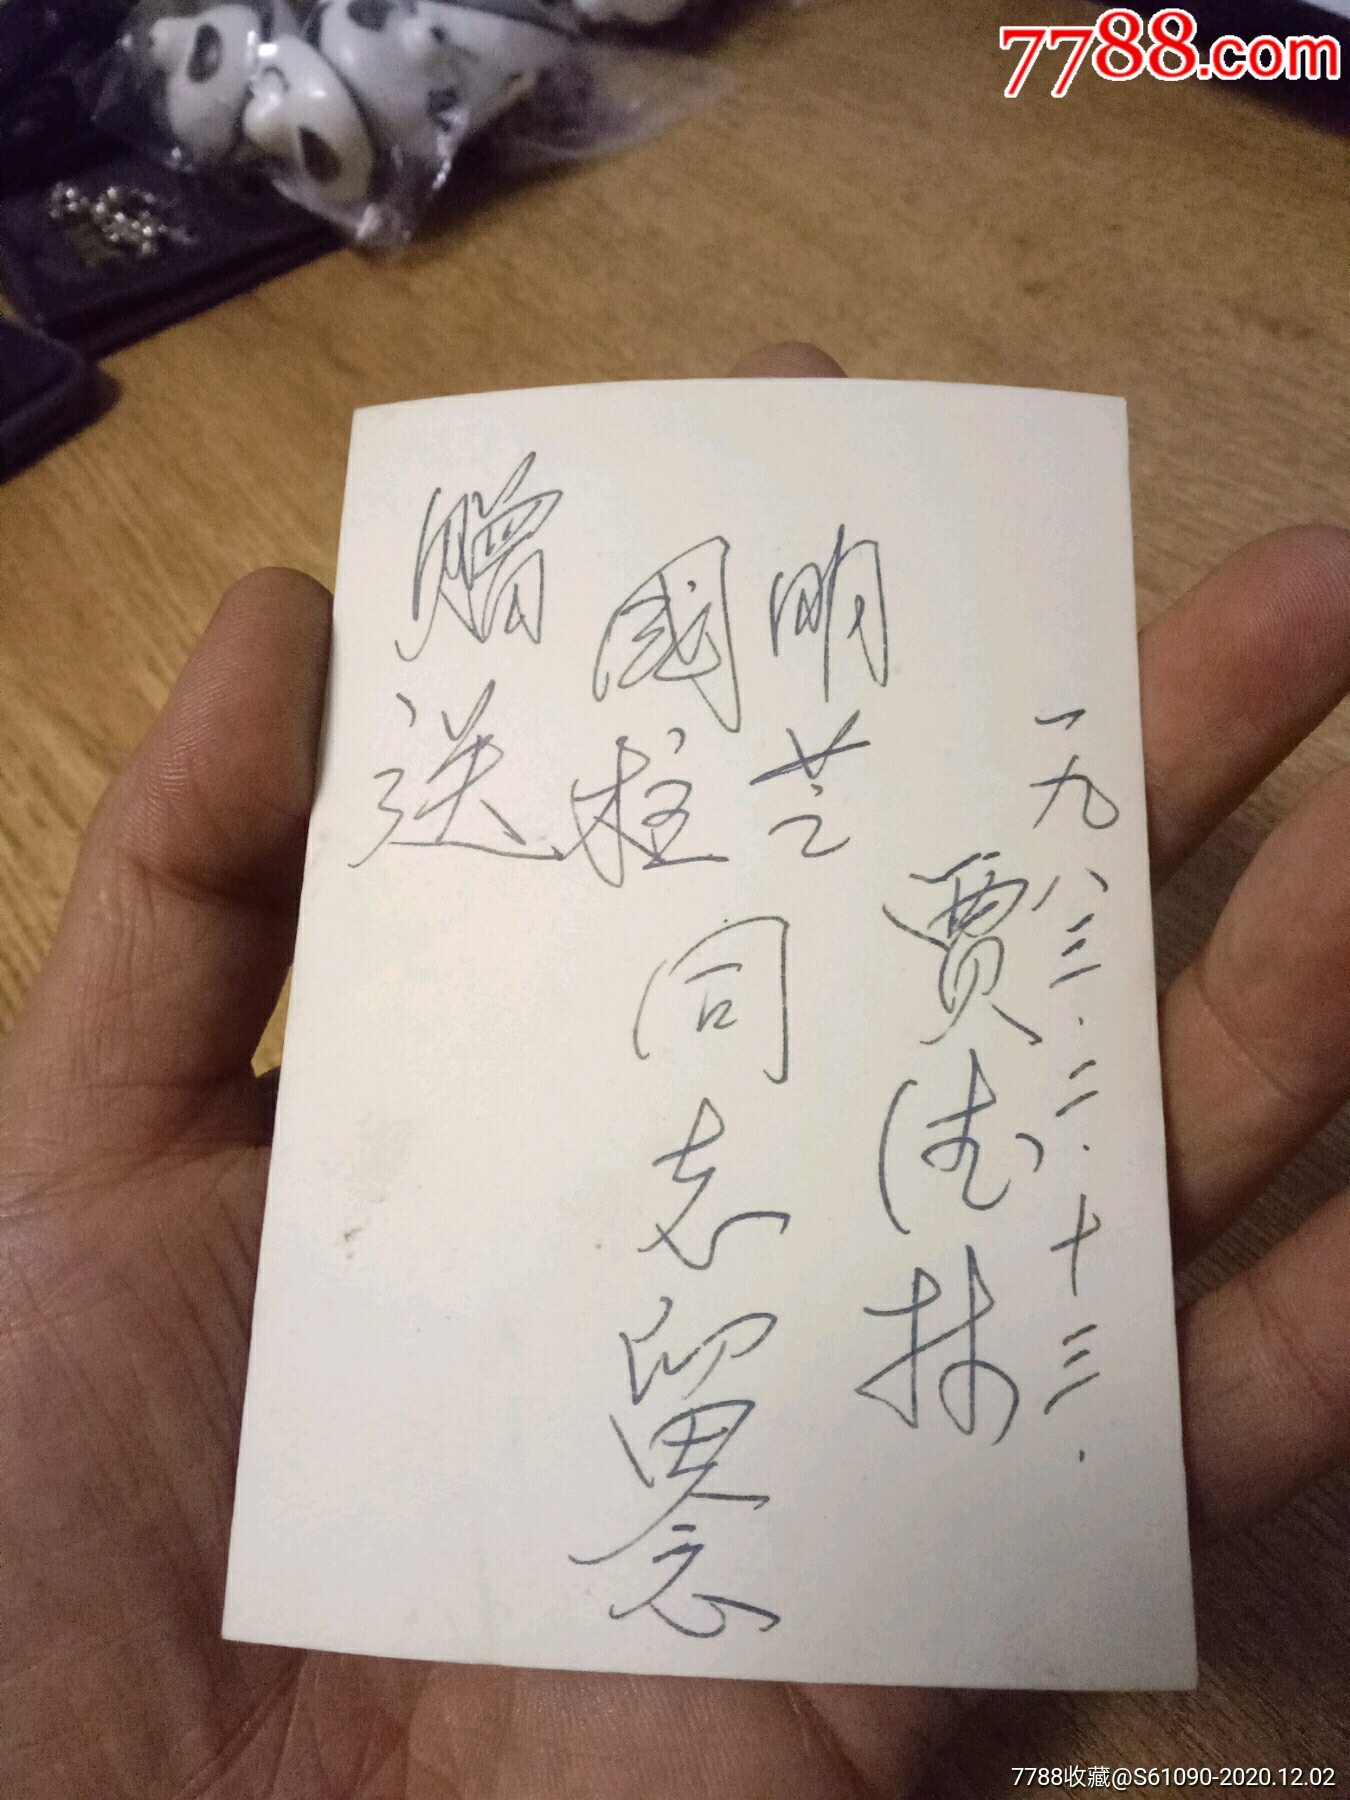 7788.com
赠送
國柱
明芝
同志留念
贾德林
一九八三.二.十三.
7788收藏@S61090-2020.12.02